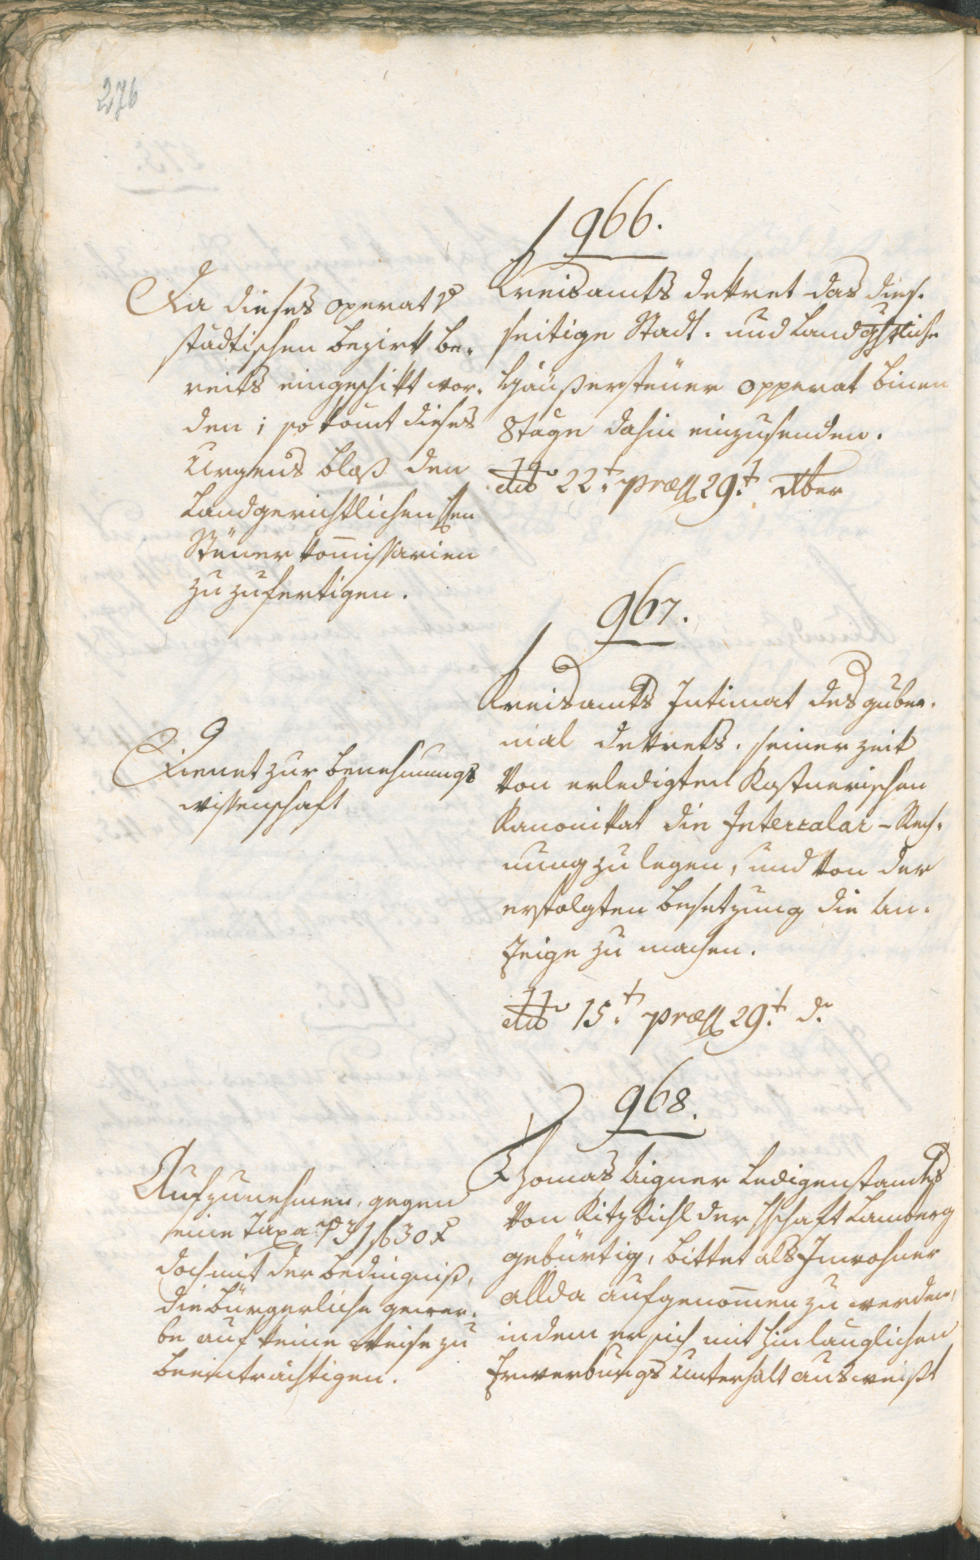 276
966.
Da dieses operat
städtischen bezirk be-
reits eingeschikt wor-
den; so komt dieses
Urgens bloß den
Landgerichtlichen
Steüer Commissarien
zu zufertigen.
Kreisamts dekret das dies-
seitige Stadt- und Landgstliche
Häußersteüer opperat binen
8 Tagen dahin einzusenden.
ddo 22t praes 29t 8ber
967.
Dienet zur benehmungs
wissenschaft
Kreisamts Intimat des guber-
nial dekrets. seiner zeit
von erledigten Kostnerischen
Kanonikat die Intercalar-Rech-
nung zu legen, und von der
erfolgten besetzung die An-
zeige zu machen.
ddo 15t praes 29t do
968.
Aufzunehmen, gegen
eine Taxa
doch mit der bedingniß,
die bürgerliche gewer-
be auf keine Weise zu
beeinträchtigen.
Thomas Aigner Ledigenstandes
von Kitzbichl der Hschaft Lamberg
gebürtig, bittet als Inwohner
allda aufgenommen zu werden,
indem er sich mit hinlänglichen
Erwerbungs Unterhalt ausweißt